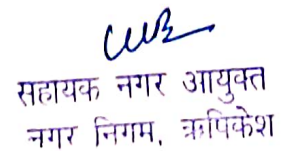 सहायक नगर आयुक्त
नगर निगम, ऋषिकेश